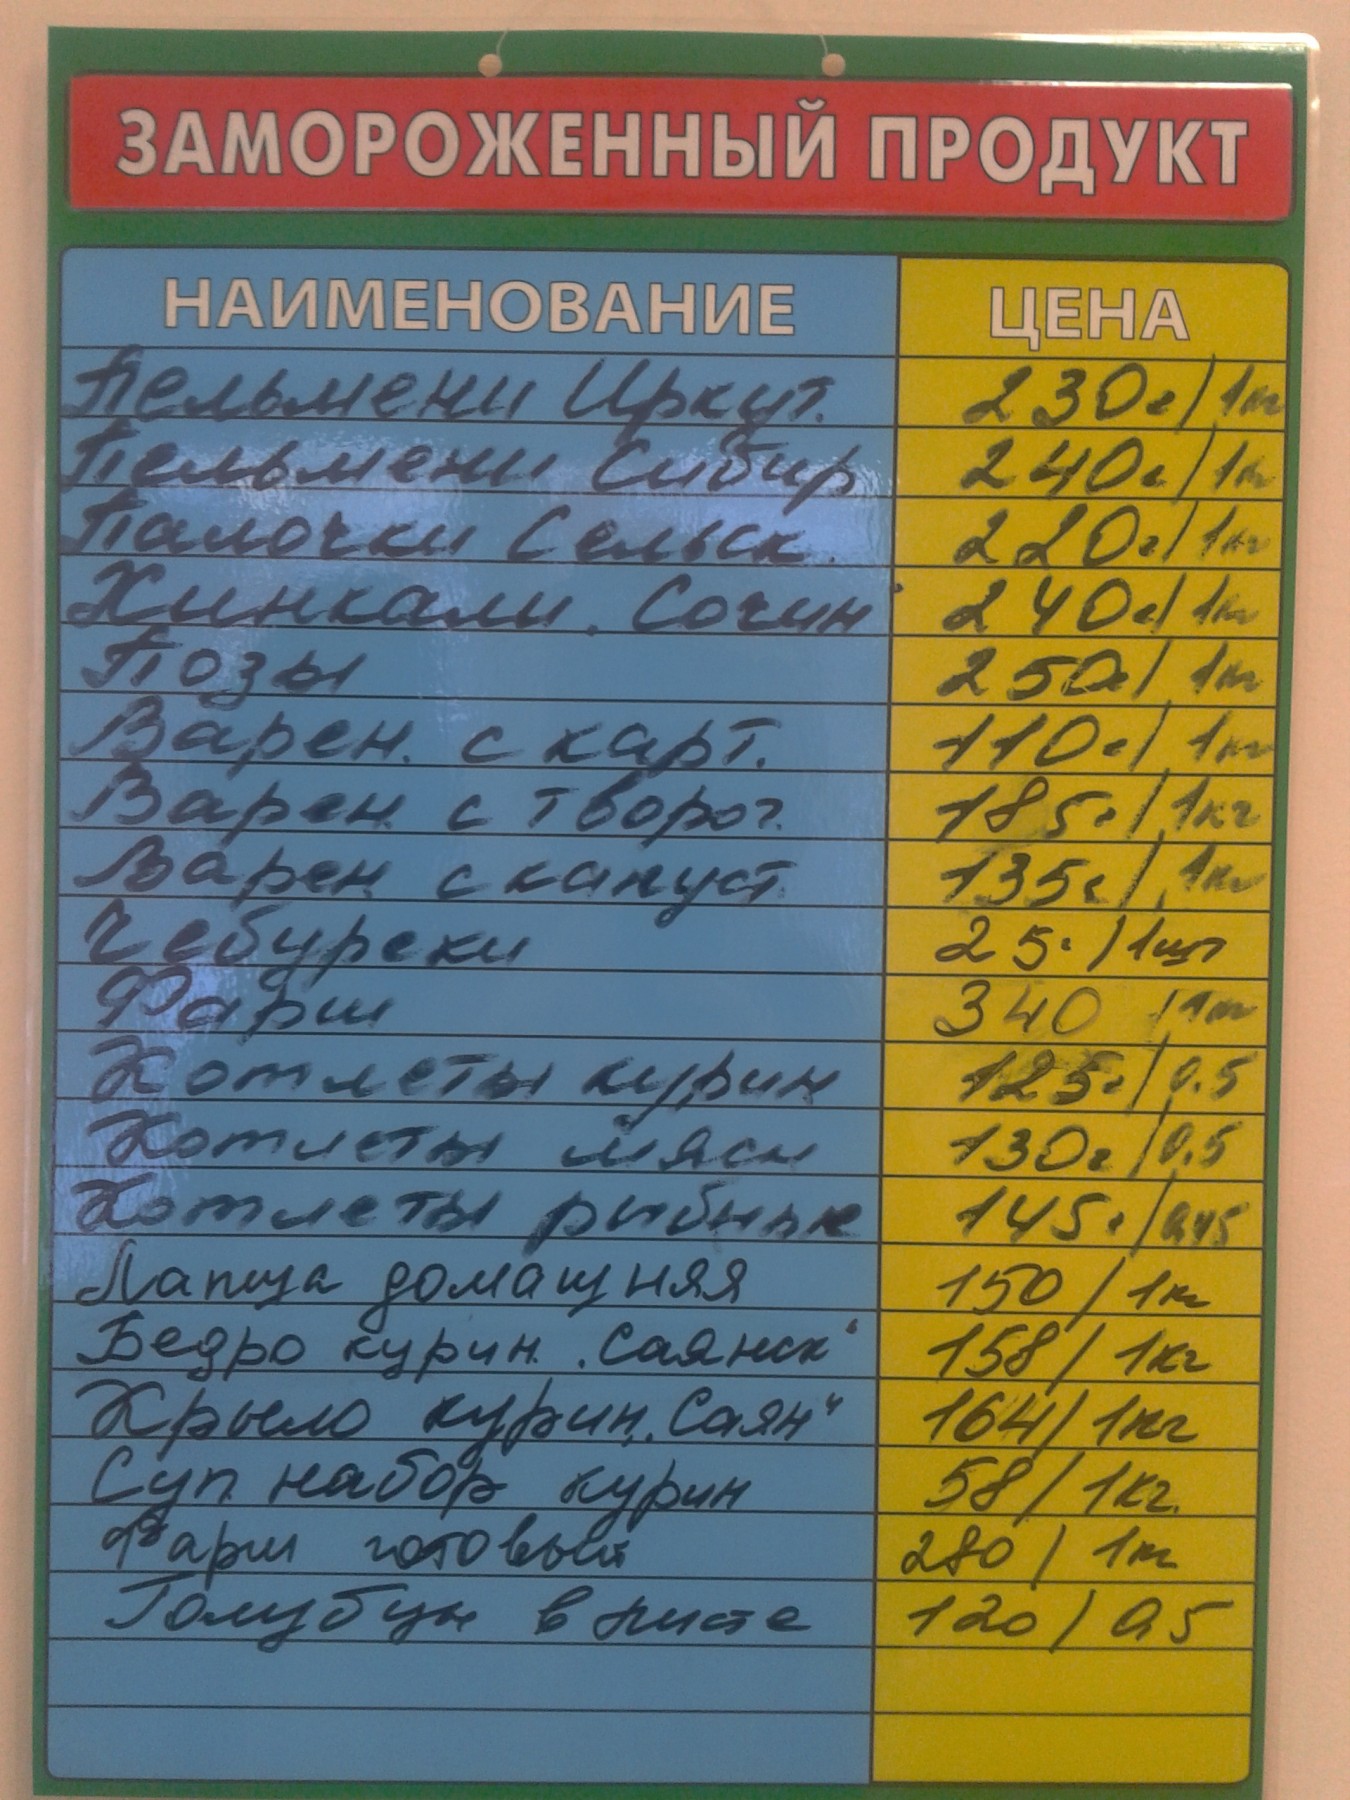 ЗАМОРОЖЕННЫЙ ПРОДУКТ
НАИМЕНОВАНИЕ ЦЕНА
Пельмени Иркут. 230г/1кг
Пельмени Сибир 240г/1кг
Палочки Сельск. 220г/1кг
Хинкали „Сочин" 240г/1кг
Позы 250г/1кг
Варен. с карт. 110г/1кг
Варен. с творог. 185г/1кг
Варен. с капуст. 135г/1кг
Чебуреки 25г/1шт
Фарш 340 /1кг
Котлеты курин 125г/0.5
Котлеты мясн 130г/0.5
Котлеты рыбные 145г/0,45
Лапша домашняя 150/1кг
Бедро курин. „Саянск" 158/1кг
Крыло курин. „Саян" 164/1кг
Суп. набор курин 58/1кг.
Фарш готовый 280/1кг
Голубцы в листе 120/0.5